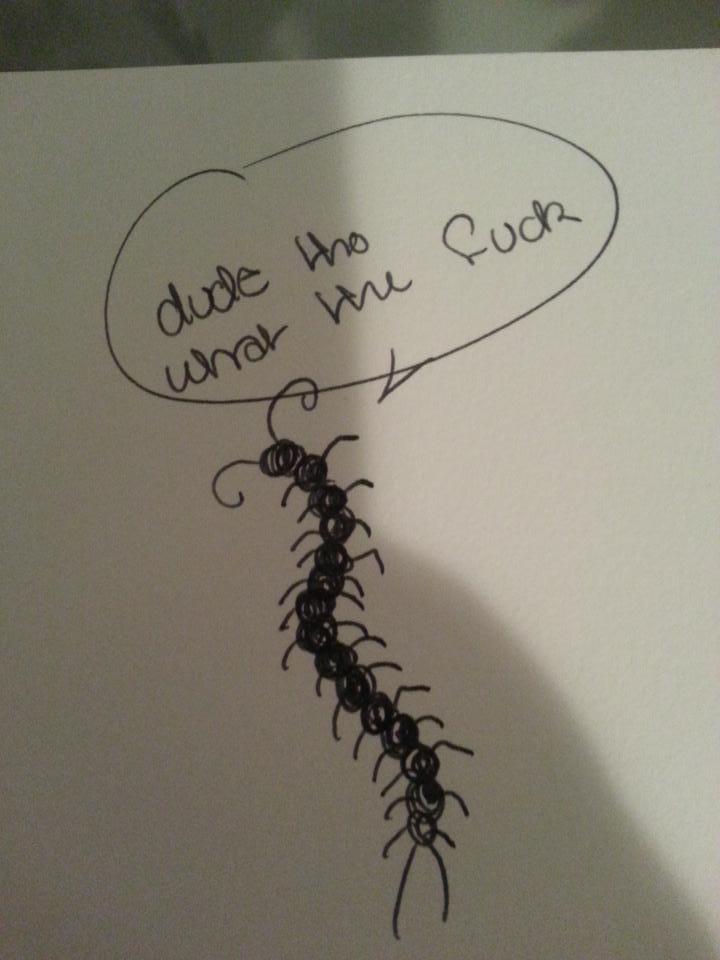 dude tho
what the fuck